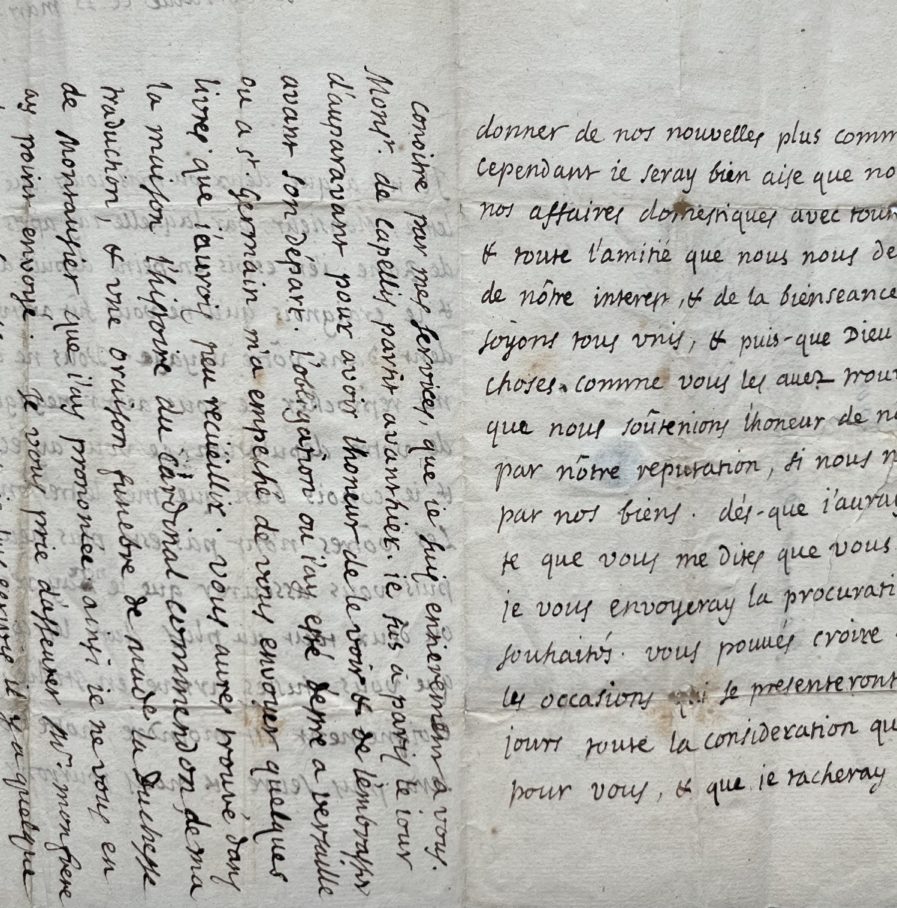 donner de nos nouvelles plus comm
cependant ie seray bien aise que no
nos affaires domestiques avec tout
& toute l'amitié que nous nous de
de nôtre interest, & de la bienseance
soÿons tous vnis, & puis-que Dieu
choses comme vous les auez trou
que nous soûtenions l'honeur de no
par nôtre reputation, si nous n
par nos biens. dés-que i'auray
te que vous me dites que vous
je vous envoyeray la procurati
souhaités. vous pouués croire
les occasions qui se presenteront
jours toute la consideration qu
pour vous, & que ie tacheray
conoitre par mes services, que ie suis entierement a vous.
Monsr. de Capellis partit avanthier. ie fus a paris le iour
d'auparavant pour avoir l'honeur de le voir & de l'embrasser
avant son départ. l'obligation ou i'ay esté d'estre a versaille
ou a st. Germain m'a empesché de vous envoyer quelques
livres que i'aurois peu recueillir. vous aures trouvé, dans
la maison l'histoire du Cardinal Commendon, de ma
traduction, & vne oraison funebre de mad.e la Duchesse
de Montausier que i'ay prononcée ainsi ie ne vous en
ay point envoyé. Ie vous prie d'asseurer Mr. mon frere